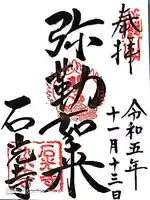 奉拝
令和五年
十一月十三日
弥勒如来
石光寺